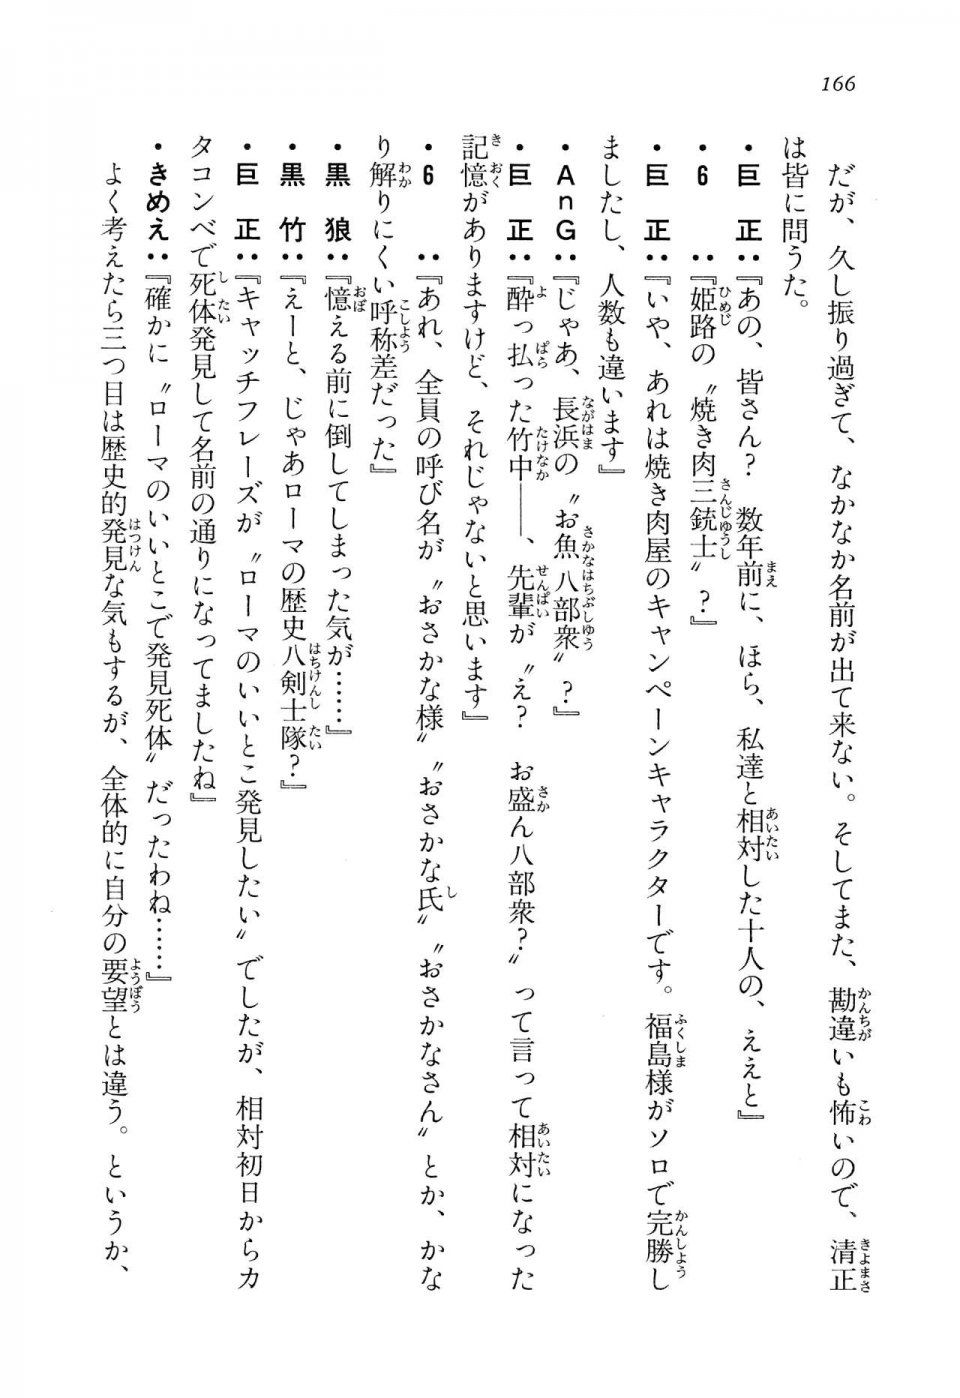 166
だが、久し振り過ぎて、なかなか名前が出て来ない。そしてまた、勘違いも怖いので、清正
は皆に問うた。
・巨　正：『あの、皆さん？　数年前に、ほら、私達と相対した十人の、ええと』
・６　　：『姫路の〝焼き肉三銃士〟？』
・巨　正：『いや、あれは焼き肉屋のキャンペーンキャラクターです。福島様がソロで完勝し
ましたし、人数も違います』
・ＡｎＧ：『じゃあ、長浜の〝お魚八部衆〟？』
・巨　正：『酔っ払った竹中――、先輩が〝え？　お盛ん八部衆？〟って言って相対になった
記憶がありますけど、それじゃないと思います』
・６　　：『あれ、全員の呼び名が〝おさかな様〟〝おさかな氏〟〝おさかなさん〟とか、かな
り解りにくい呼称差だった』
・黒　狼：『憶える前に倒してしまった気が……』
・黒　竹：『えーと、じゃあローマの歴史八剣士隊？』
・巨　正：『キャッチフレーズが〝ローマのいいとこ発見したい〟でしたが、相対初日からカ
タコンベで死体発見して名前の通りになってましたね』
・きめえ：『確かに〝ローマのいいとこで発見死体〟だったわね……』
よく考えたら三つ目は歴史的発見な気もするが、全体的に自分の要望とは違う。というか、